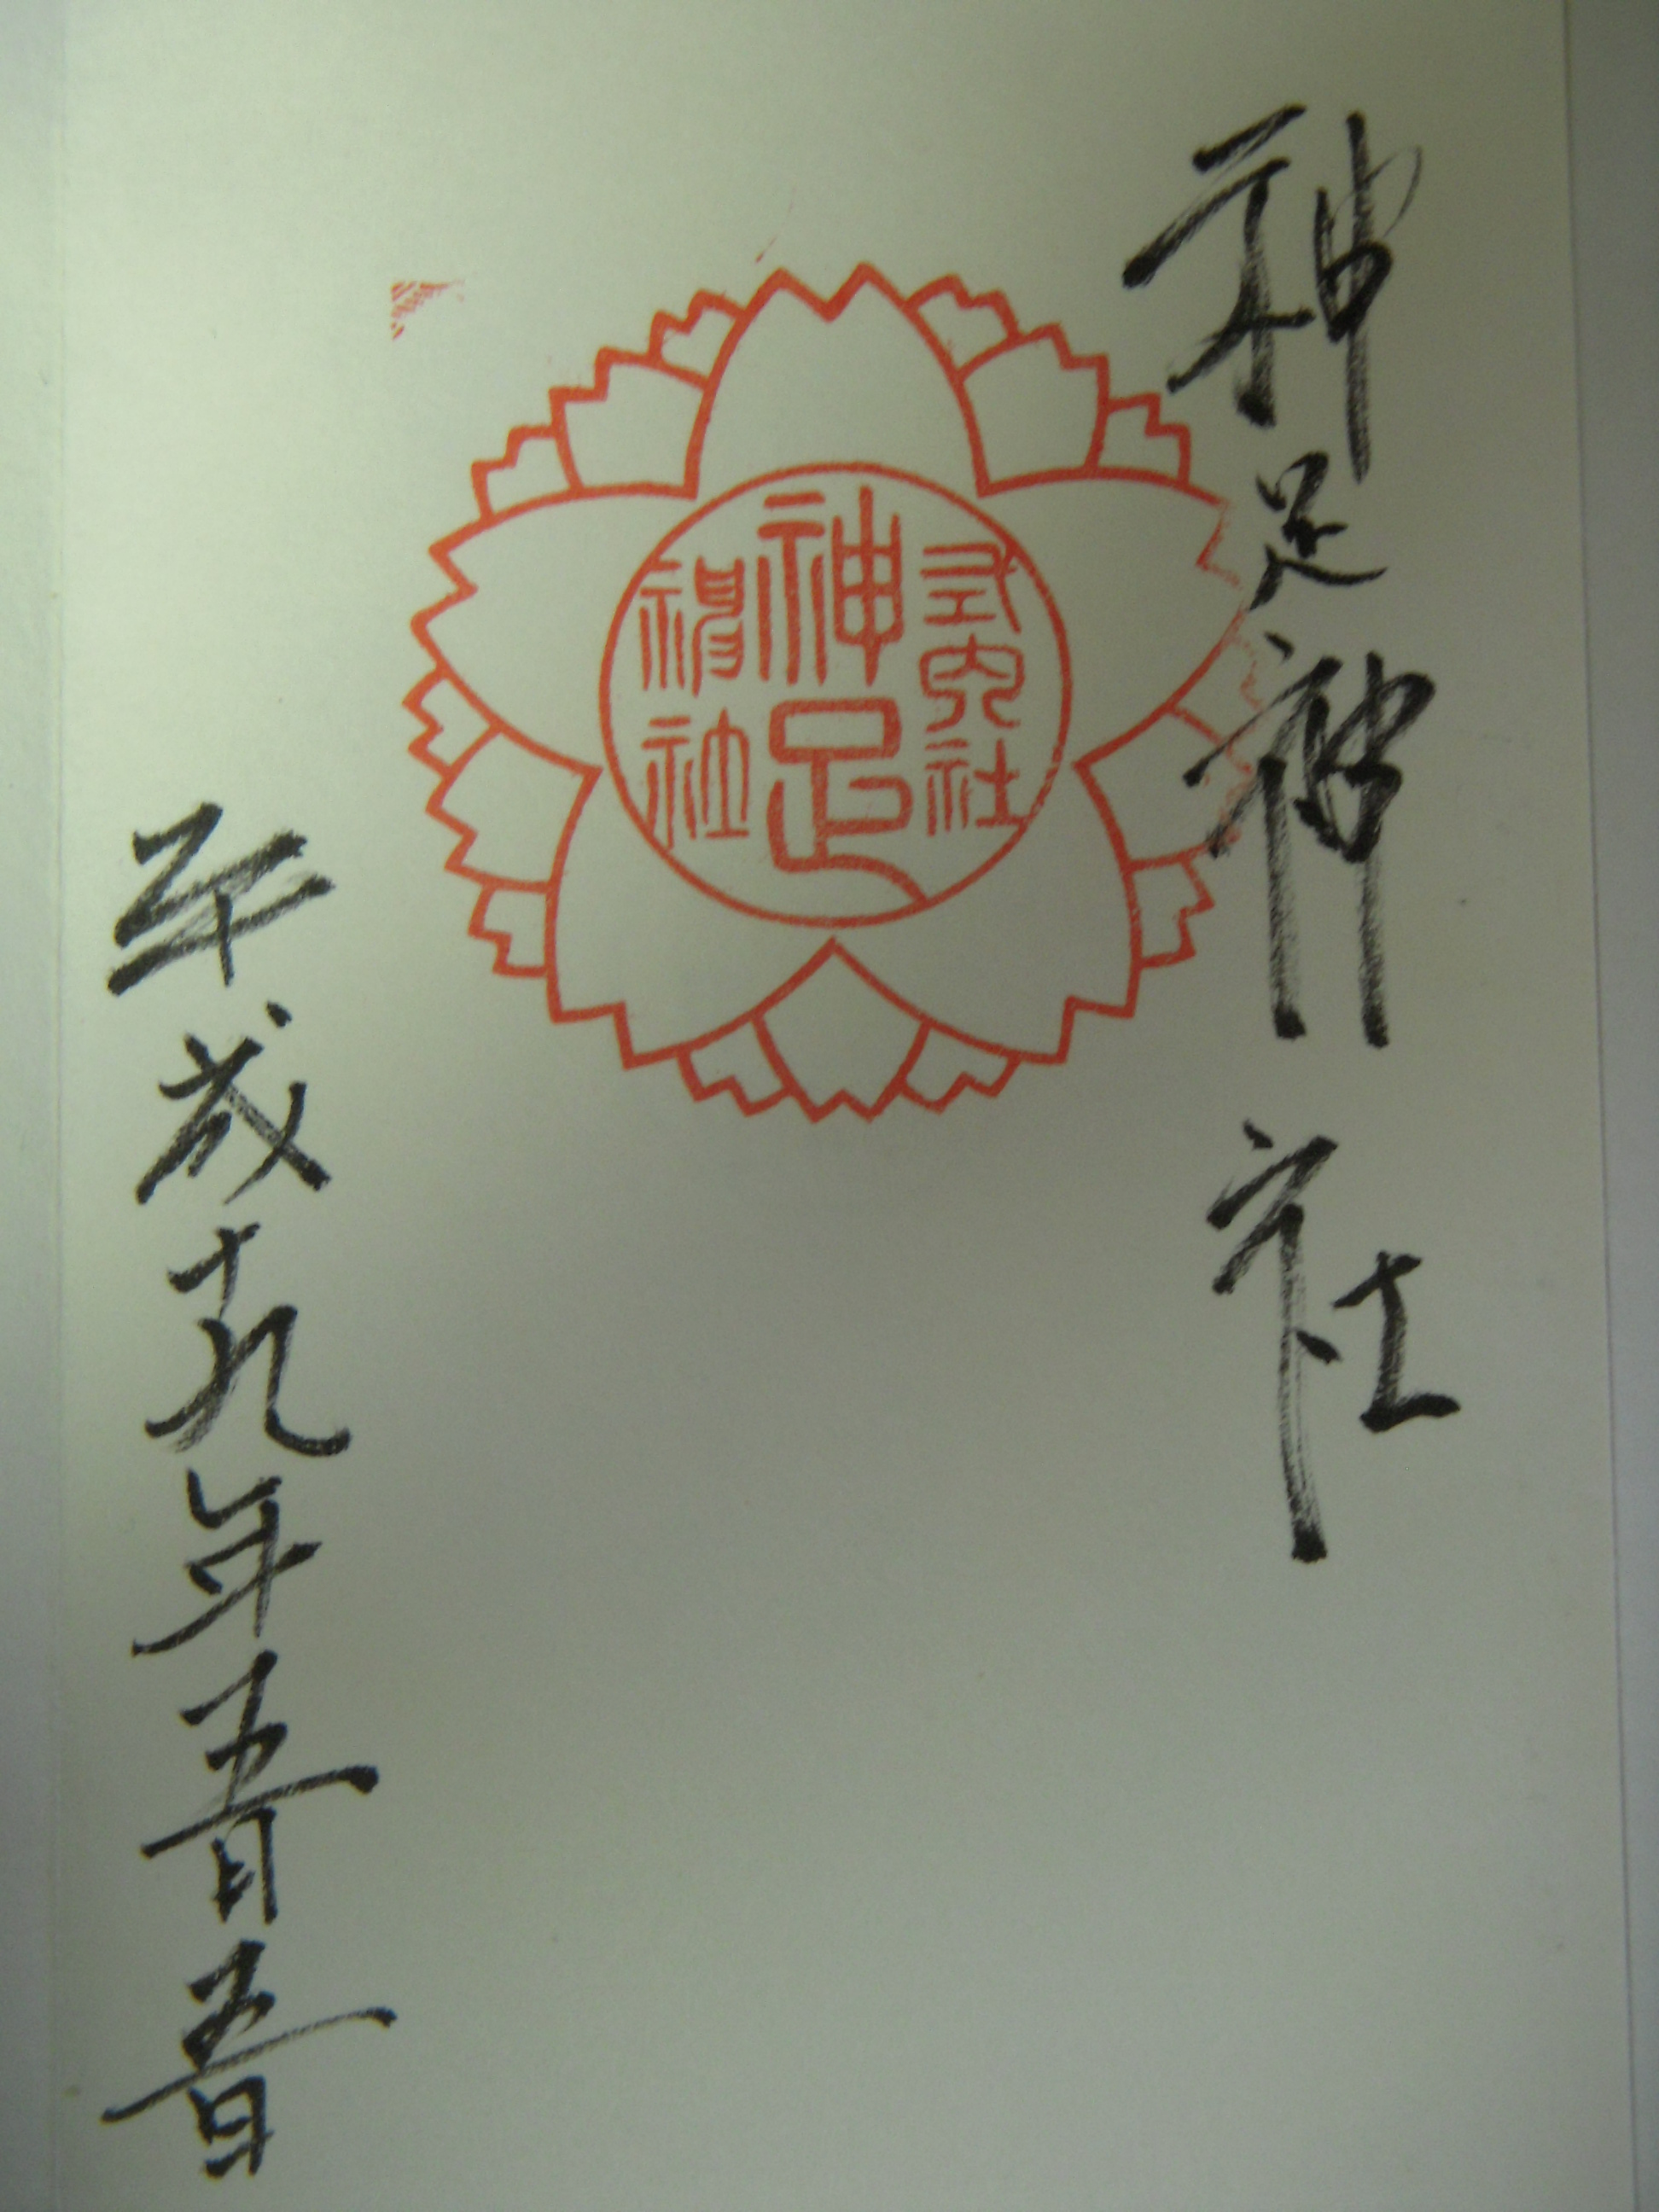 神足神社
式内社
神足
神社
平成十九年五月五日